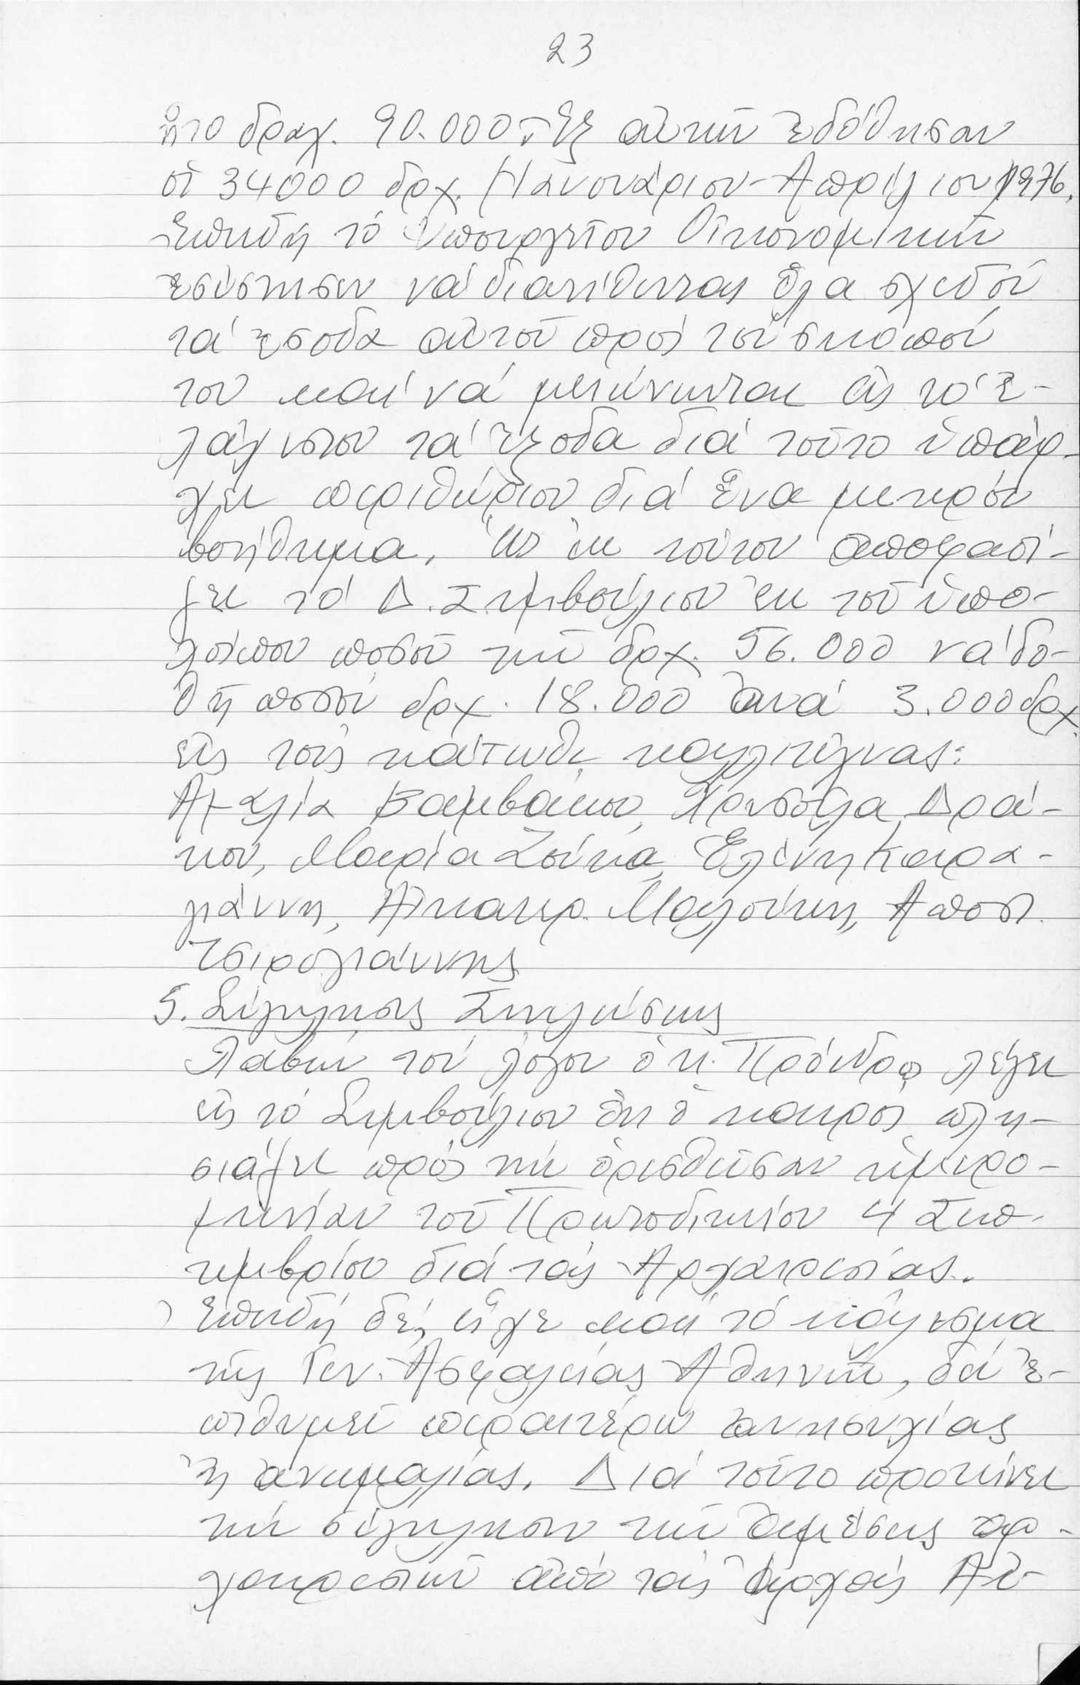 23
ἦτο δραχ. 90.000.- Ἐξ αὐτῶν ἐδόθησαν
οἱ 34000 δρχ. (Ἰανουάριου-Ἀπρίλιου 1976.
Ἐπειδή τό Ὑπουργεῖον Οἰκονομικῶν
ἐσύστησεν νά διατίθενται ὅλα σχεδόν
τά ἔσοδα αὐτοῦ πρός τόν σκοπόν
του καί νά μειώνωνται εἰς τό ἐ-
λάχιστον τά ἔξοδα διά τοῦτο ὑπάρ-
χει περιθώριον διά ἕνα μικρόν
βοήθημα. Ὡς ἐκ τούτου ἀποφασί-
ζει τό Δ. Συμβούλιον ἐκ τοῦ ὑπο-
λοίπου ποσοῦ τῶν δρχ. 56.000 νά δο-
θῇ ποσόν δρχ. 18.000 ἀνά 3.000 δρχ
εἰς τούς κάτωθι καλλιτέχνας:
Ἀμαλία Βαμβακου, Χρυσούλα Δρά-
κου, Μαρία Ζούκα, Ἑλένη Καρα-
γιάννη, Αἰκατερ. Μαλούκη, Ἀποστ.
Τσιρογιάννης
5. Σύγκλησις Συνελεύσεως
Λαβών τόν λόγον ὁ κ. Πρόεδρος λέγει
εἰς τό Συμβούλιον ὅτι ὁ καιρός πλη-
σιάζει πρός τήν ὁρισθεῖσαν ἡμερο-
μηνίαν τοῦ Πρωτοδικείου 4 Σεπ-
τεμβρίου διά τάς Ἀρχαιρεσίας.
Ἐπειδή δέ, εἶχε καί τό κάλεσμα
τῆς Γεν. Ἀσφαλείας Ἀθηνῶν, δέν ἐ-
πιθυμεῖ περαιτέρω ἀνησυχίας
ἤ ἀνωμαλίας. Διά τοῦτο προτείνει
τήν σύγκλησιν τῶν ἀμέσως ἀρ-
χαιρεσιῶν ἀπό τάς ἀρχάς Αὐ-